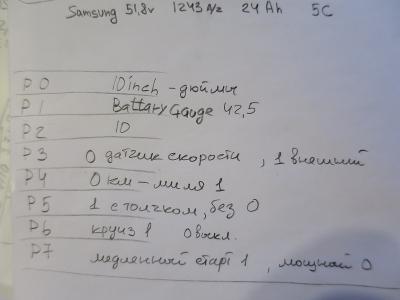 Samsung 51,8v 1243 Д/z 24 Ah 5C
P0 10inch - дюймы
P1 Battary Gauge 42,5
P2 10
P3 0 датчик скорости, 1 внешний
P4 0 км - миля 1
P5 1 с толчком, без 0
P6 круиз 1 0 выкл.
P7 медленный старт 1, мощный 0